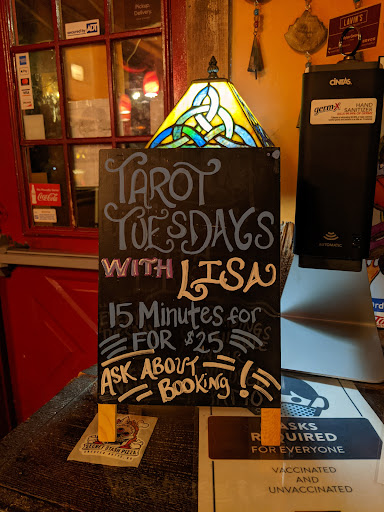 Pickup
Delivery
ADT
LAVIN'S
CINTAS.
germ-x
HAND
SANITIZER
AUTOMATIC
Coca-Cola
TAROT
TUESDAYS
WITH LISA
15 MINUTES for
FOR $25
ASK ABOUT
BOOKING!
MASKS
REQUIRED
FOR EVERYONE
VACCINATED
AND
UNVACCINATED